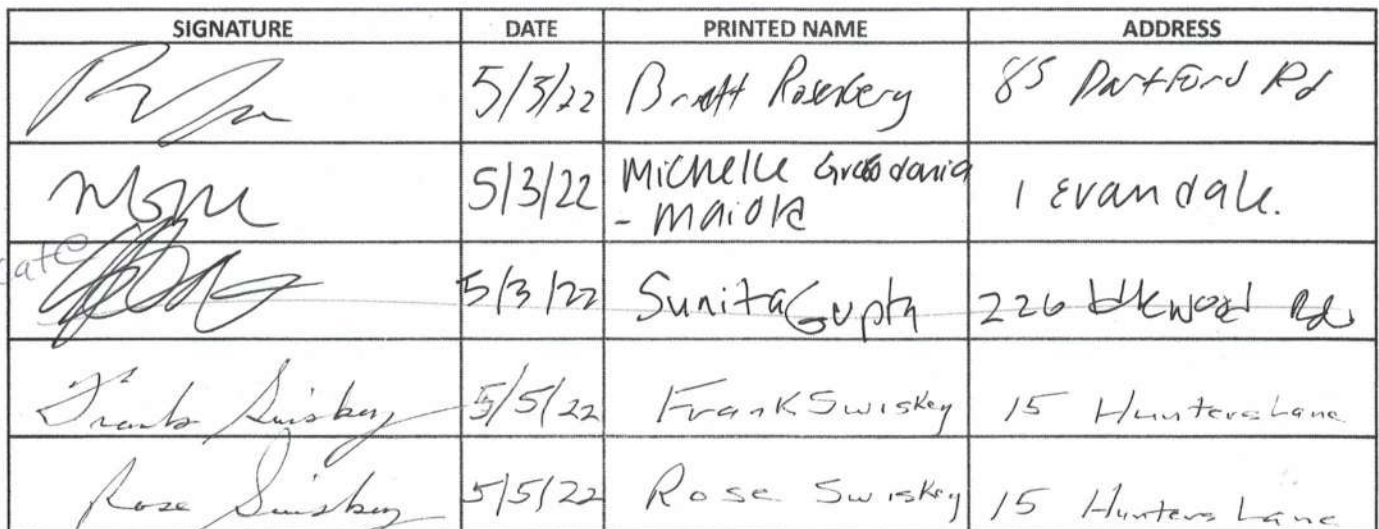 SIGNATURE DATE PRINTED NAME ADDRESS
5/3/22 Brett Rosenberg 85 Dartford Rd
5/3/22 Michelle
- Maiora 1 Evandale.
5/3/22 Sunita Gupta 226 Rd.
Frank Swiskey 5/5/22 Frank Swiskey 15 Hunters Lane
Rose Swiskey 5/5/22 Rose Swiskey 15 Hunters Lane